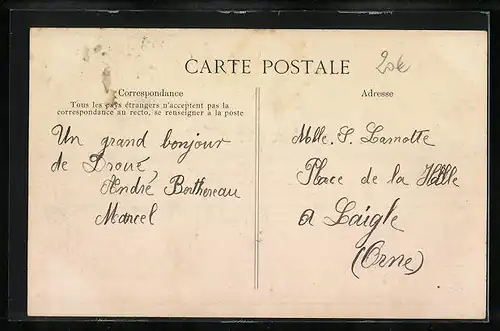 CARTE POSTALE
Correspondance
Tous les pays étrangers n'acceptent pas la
correspondance au recto, se renseigner à la poste
Un grand bonjour
de Droué,
André Berthereau
Marcel
Adresse
Mlle. S. Lamotte
Place de la Halle
a Laigle
(Orne)